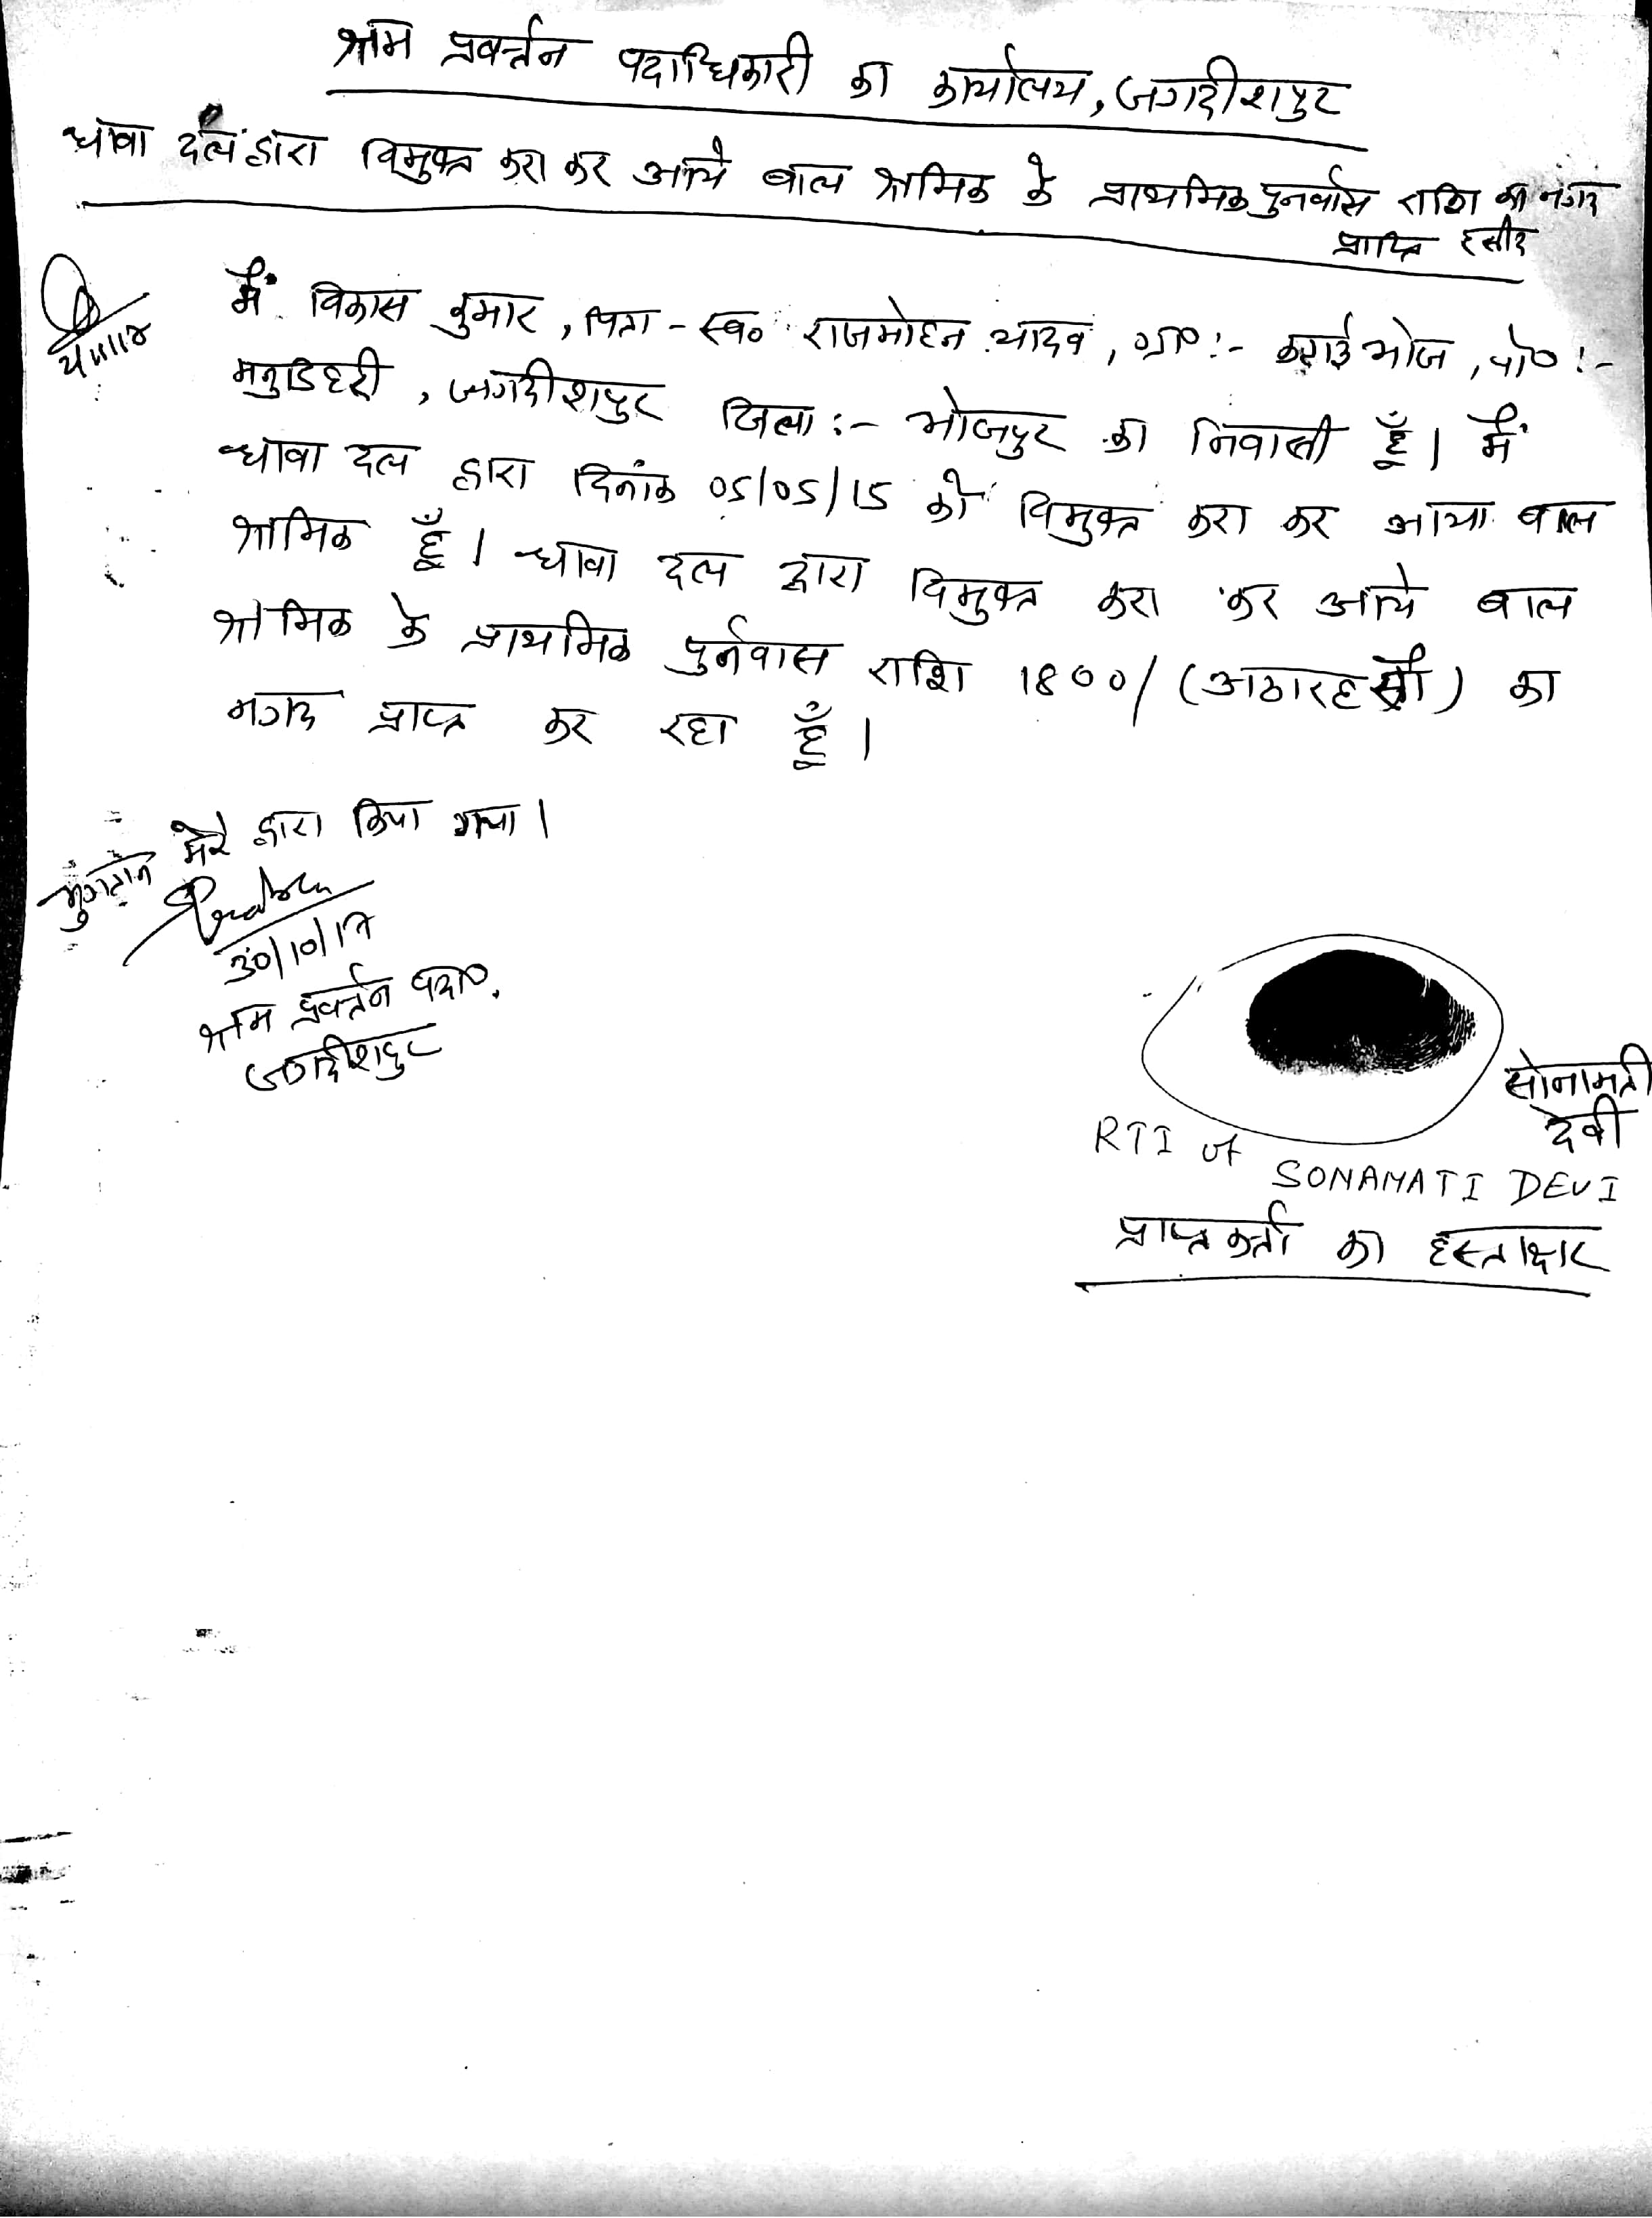 श्रम प्रवर्त्तन पदाधिकारी का कार्यालय, जगदीशपुर
धावा दल द्वारा विमुक्त करा कर आये बाल श्रमिक के प्राथमिक पुनर्वास राशि का नगद
प्राप्ति रसीद
मैं विकास कुमार, पिता - स्व० राजमोहन यादव, ग्रा० :- कराई भोज, पो० :-
मनुडिहरी, जगदीशपुर जिला :- भोजपुर का निवासी हूँ। मैं
धावा दल द्वारा दिनांक 05/05/15 को विमुक्त करा कर आया बाल
श्रमिक हूँ। धावा दल द्वारा विमुक्त करा कर आये बाल
श्रमिक के प्राथमिक पुर्नवास राशि 1800/ (अठारह सौ) का
नगद प्राप्त कर रहा हूँ।
भुगतान मेरे द्वारा किया गया।
30/10/17
श्रम प्रवर्त्तन पदा०.
जगदीशपुर
सोनामती
देवी
RTI of SONAMATI DEVI
प्राप्तकर्ता का हस्ताक्षर